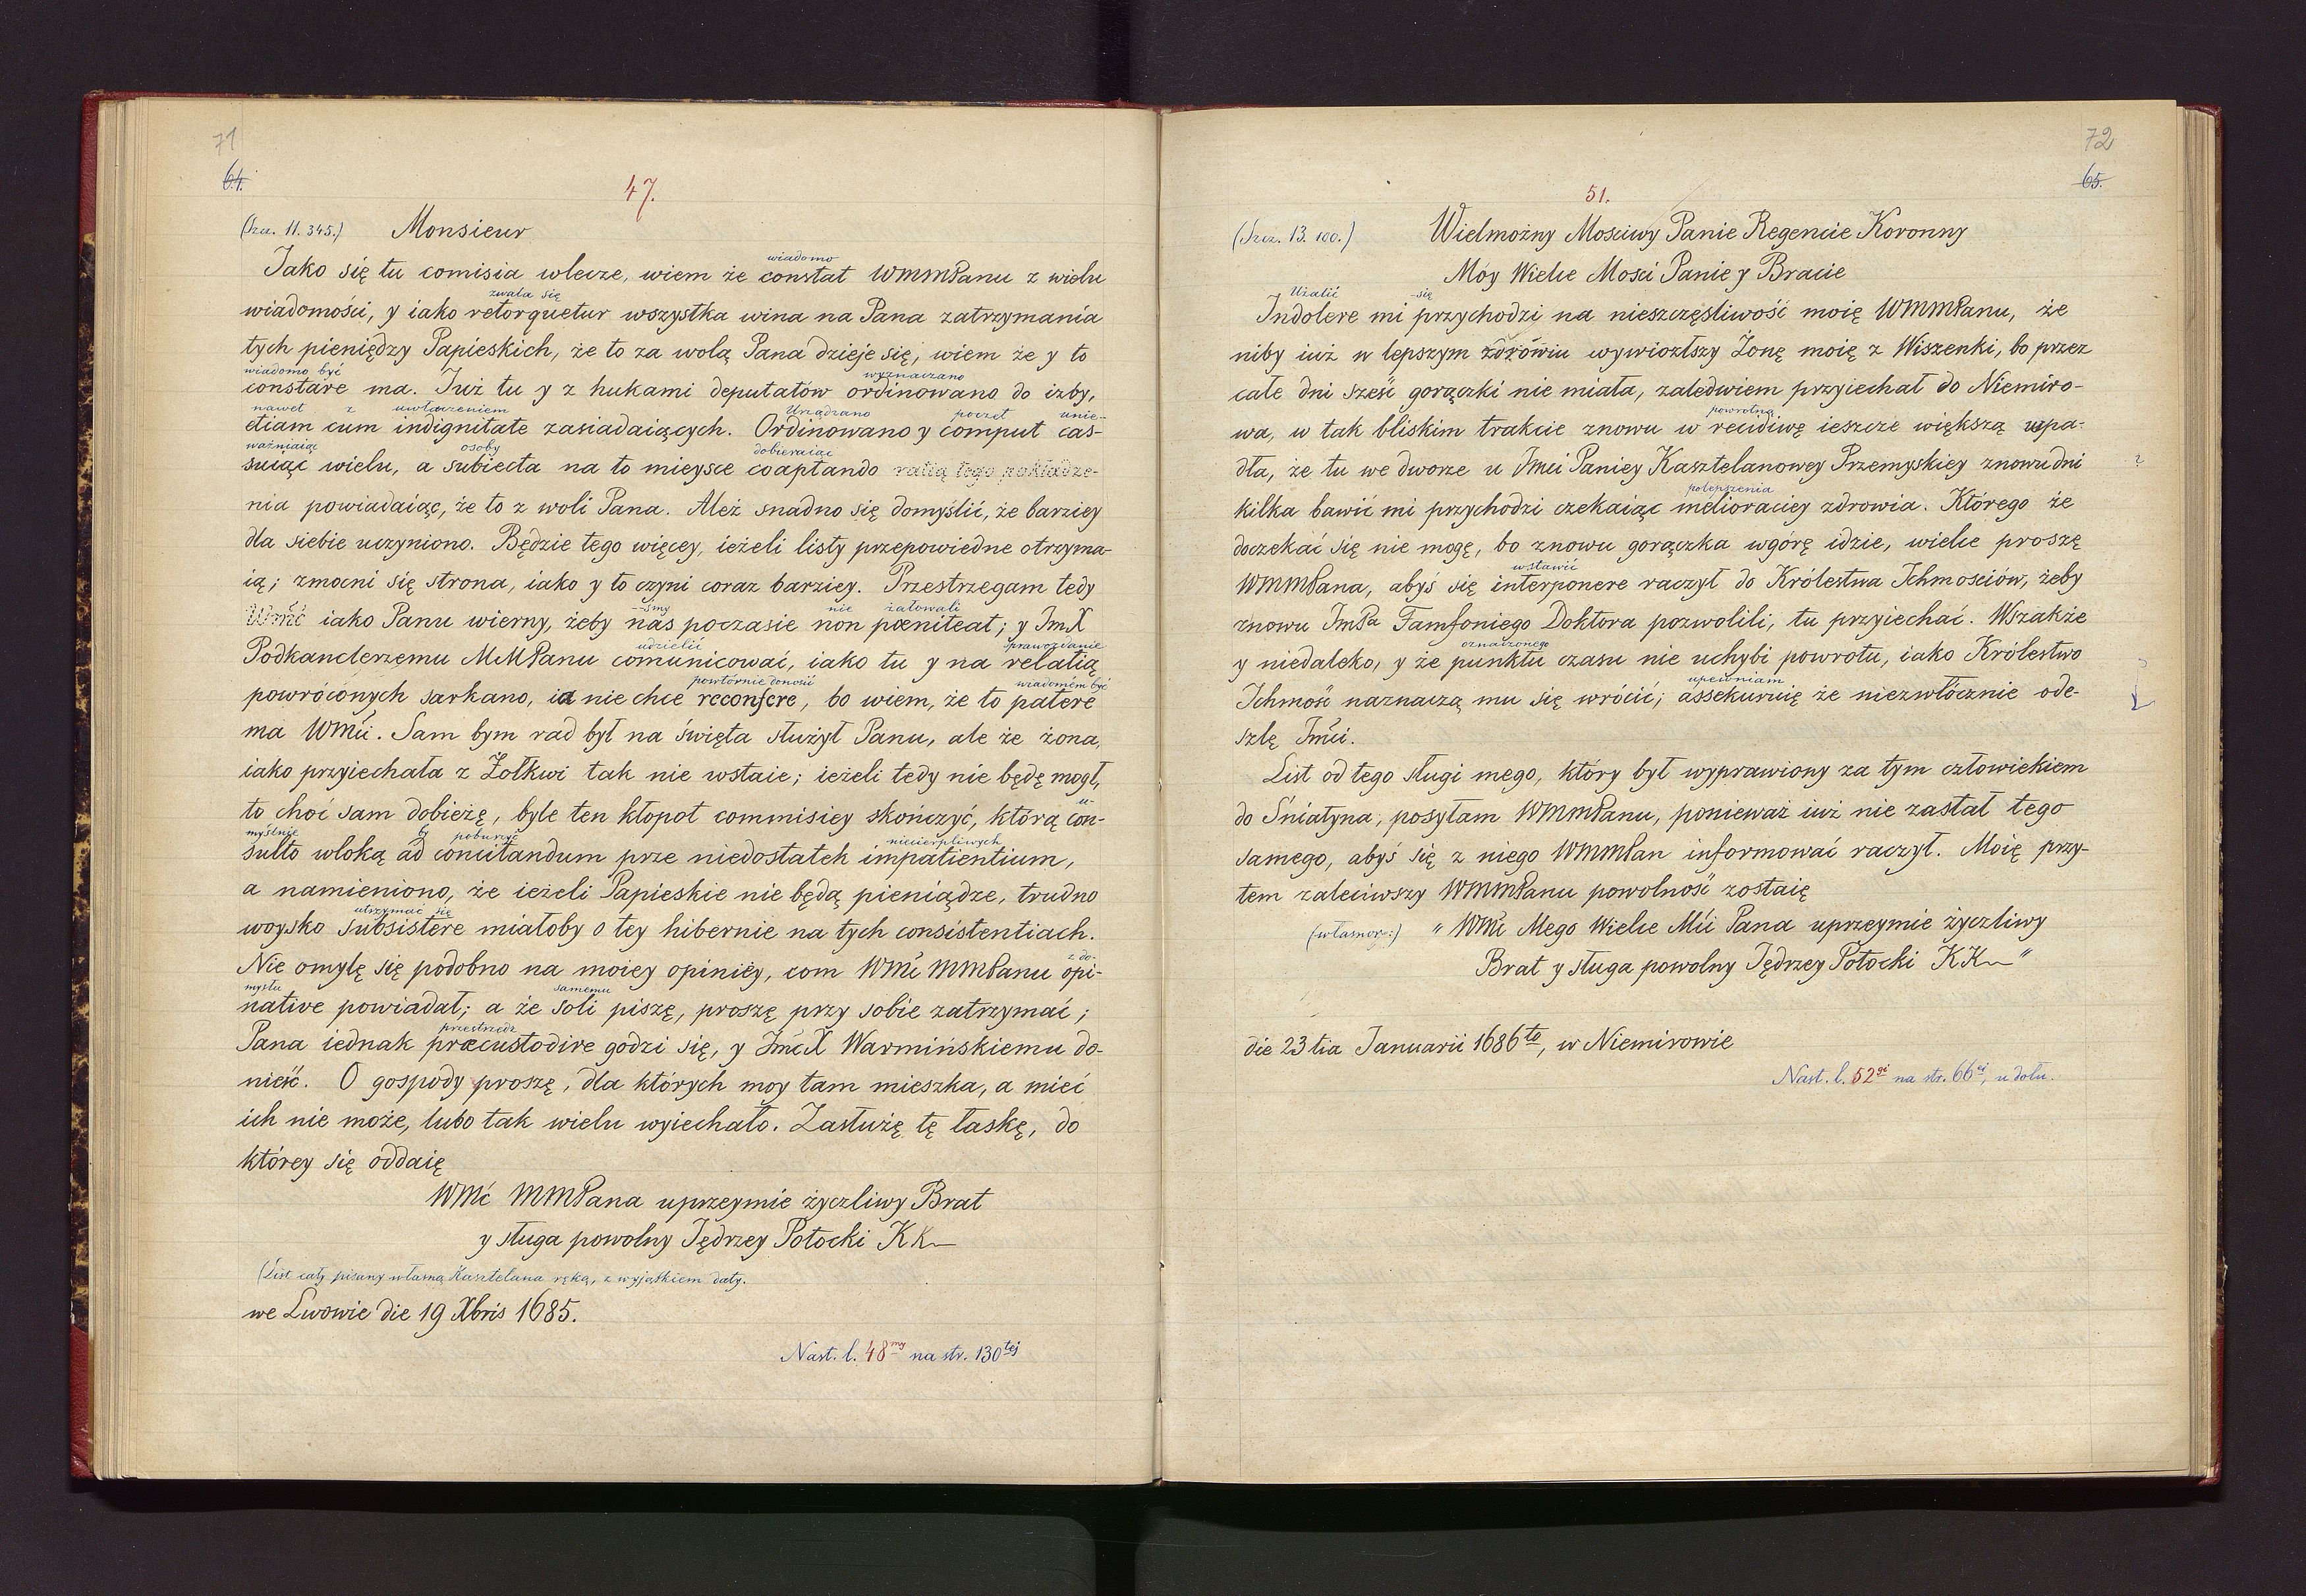 71
64.
47.
(Szcz. 11. 345.) Monsieur
wiadomo
Jako się tu comisia wlecze, wiem że constat WMMPanu z wielu
zwala się
wiadomości, y iako retorquetur wszystka wina na Pana zatrzymania
tych pieniędzy Papieskich, że to za wolą Pana dzieje się, wiem że y to
wiadomo być wyznaczano
constare ma. Już tu y z hukami deputatów ordinowano do izby,
nawet z uwłaczeniem Urządzano poczet unie-
etiam cum indignitate zasiadaiących. Ordinowano y comput cas-
ważniaiąc osoby dobieraiąc
suiąc wielu, a subiecta na to mieysce coaptando racią tego pokładze-
nia powiadaiąc, że to z woli Pana. Ależ snadno się domyślić, że barziey
dla siebie uczyniono. Będzie tego więcey, ieżeli listy przepowiedne otrzyma-
ią; zmocni się strona, iako y to czyni coraz barziey. Przestrzegam tedy
-śmy nie żałowali
WMć iako Panu wierny, żeby nas poczasie non poeniteat; y JmX
udzielić sprawozdanie
Podkanclerzemu MMPanu comunicować, iako tu y na relatią
powtórnie donosić wiadomém być
powróconych sarkano, ia nie chce reconfere, bo wiem, że to patere
ma WMći. Sam bym rad był na święta służył Panu, ale że żona,
iako przyiechała z Żołkwi tak nie wstaie; ieżeli tedy nie będę mogł,
u-
to choć sam dobieżę, byle ten kłopot commisiey skończyć, którą con-
myślnie by poburzyć niecierpliwych
sulto wloką ad concitandum prze niedostatek impatientium,
a namieniono, że ieżeli Papieskie nie będą pieniądze, trudno
utrzymać się
woysko subsistere miałoby o tey hibernie na tych consistentiach.
z do-
Nie omylę się podobno na moiey opiniey, com WMći MMPanu opi-
mysłu samemu
native powiadał; a że soli piszę, proszę przy sobie zatrzymać;
przestrzedz
Pana iednak praecustodire godzi się, y JmćX Warmińskiemu do-
nieść. O gospody proszę, dla których moy tam mieszka, a mieć
ich nie może, lubo tak wielu wyiechało. Zasłużę tę łaskę, do
którey się oddaię
WMć MMPana uprzeymie życzliwy Brat
y sługa powolny Jędrzey Potocki KK
(List cały pisany własną Kasztelana ręką, z wyjątkiem daty.
we Lwowie die 19 Xbris 1685.
Nast. l. 48my na str. 130tej
72
65.
51.
(Szcz. 13. 100.) Wielmożny Mosciwy Panie Regencie Koronny
Móy Wielce Mosci Panie y Bracie
Użalić -się
Indolere mi przychodzi na nieszczęśliwość moię WMMPanu, że
niby iuż w lepszym zdrowiu wywiozłszy Żonę moię z Wiszenki, bo przez
całe dni sześć gorączki nie miała, zaledwiem przyiechał do Niemiro-
powrotną
wa, w tak bliskim trakcie znowu w recidiwę ieszcze większą upa-
dła, że tu we dworze u Jmci Paniey Kasztelanowey Przemyskiey znowu dni ?
polepszenia
kilka bawić mi przychodzi czekaiąc melioraciey zdrowia. Którego że
doczekać się nie mogę, bo znowu gorączka wgórę idzie, wielce proszę
wstawić
WMMPana, abyś się interponere raczył do Królestwa Ichmościów, żeby
znowu JmPa Famfoniego Doktora pozwolili, tu przyiechać. Wszakże
oznaczonego
y niedaleko, y że punktu czasu nie uchybi powrotu, iako Królestwo
upewniam
Ichmość naznaczą mu się wrócić; assekuruię że niezwłócznie ode-
szlę Jmći.
List od tego sługi mego, który był wyprawiony za tym człowiekiem
do Śniatyna, posyłam WMMPanu, ponieważ iuż nie zastał tego
samego, abyś się z niego WMMPan informować raczył. Moię przy-
tem zaleciwszy WMMPanu powolność zostaię
(własnor:) "WMći Mego Wielce Mći Pana uprzeymie życzliwy
Brat y sługa powolny Jędrzey Potocki KK"
die 23tia Januarii 1686to, w Niemirowie
Nast. l. 52gi na str. 66ej, u dołu.